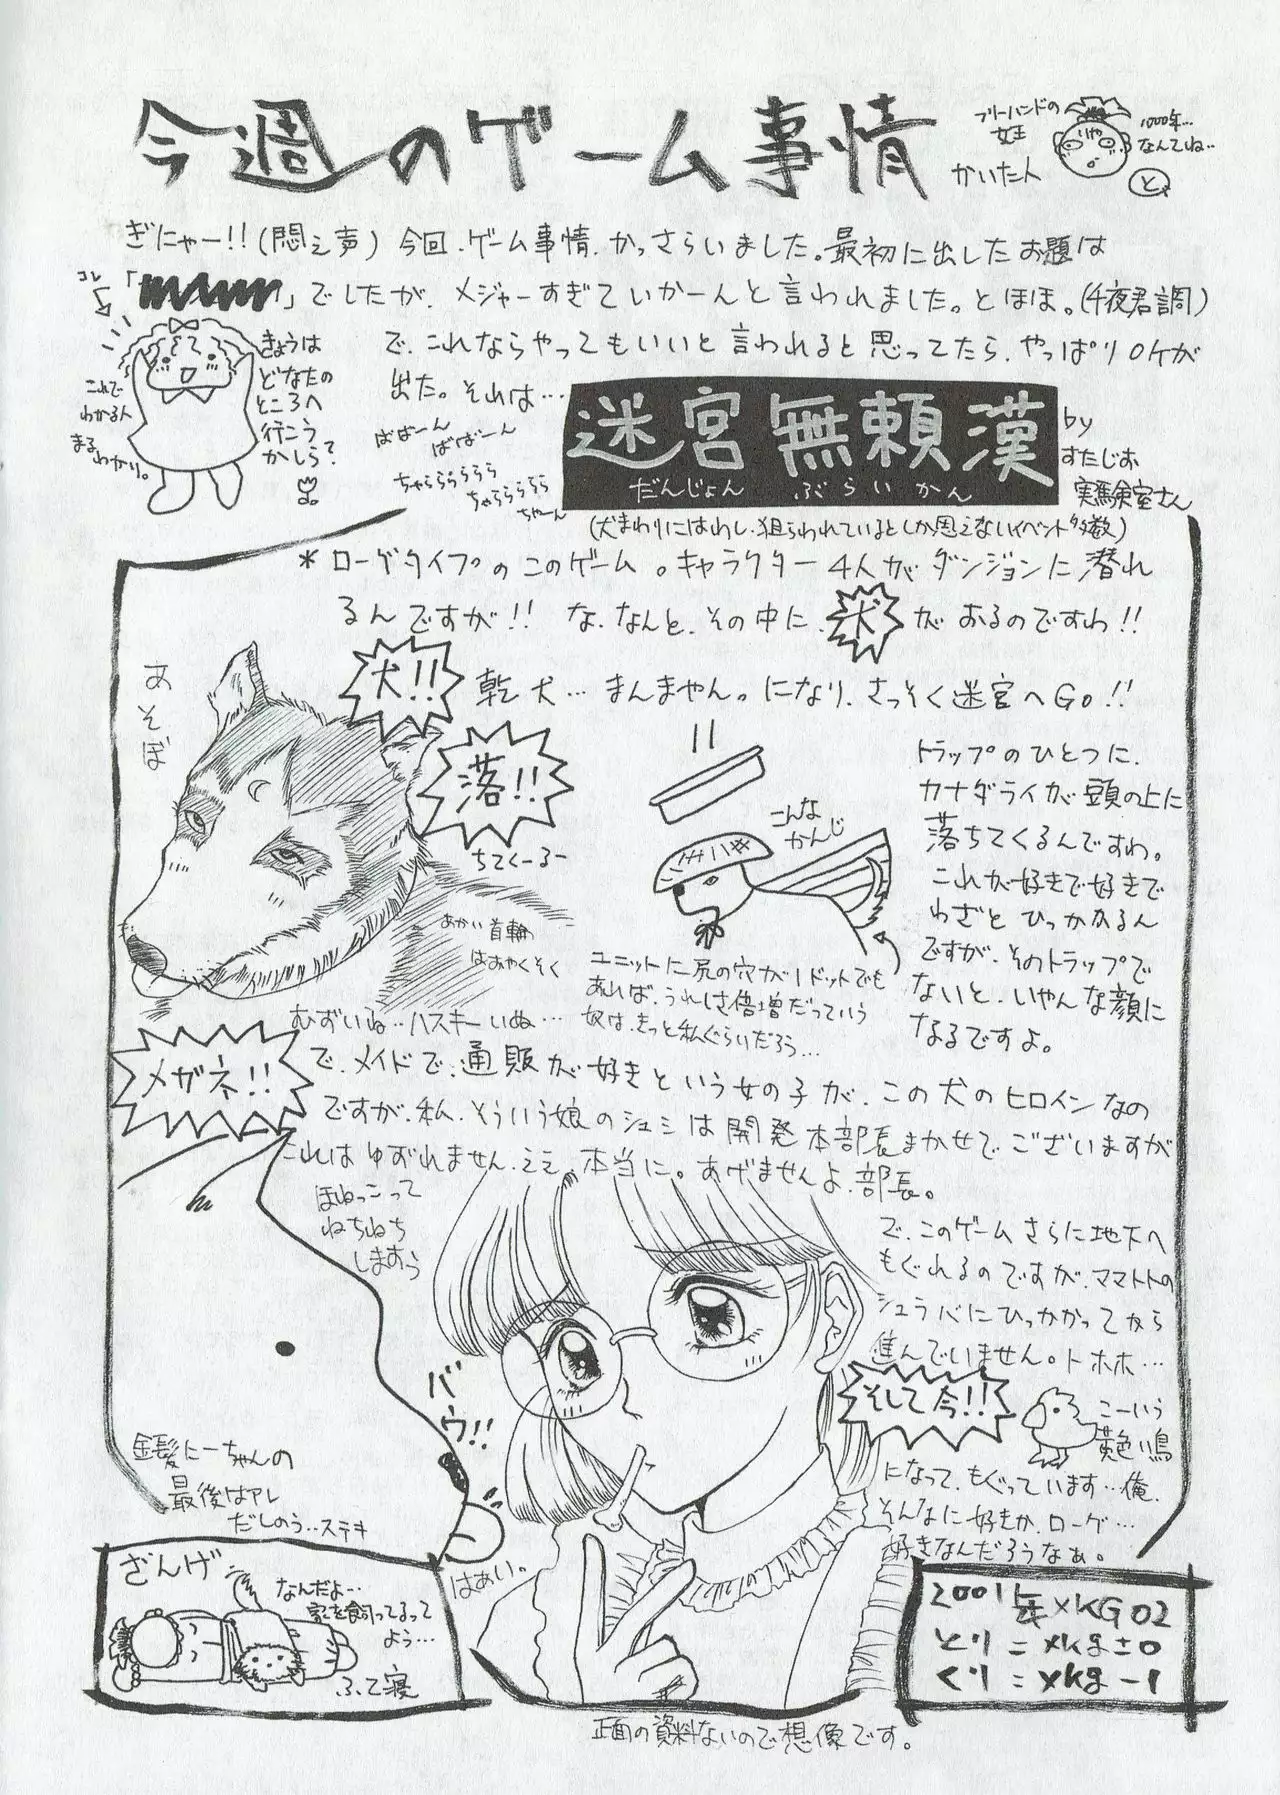 今週のゲーム事情
フリーハンドの
女王
かいた人
1000年…
なんてね…
と
ぎにゃー!!(悶え声) 今回、ゲーム事情、かっさらいました。最初に出したお題は
「　　　」でしたが、メジャーすぎていかーんと言われました。とほほ。(千夜君調)
コレ
これで
わかる人
まる
わかり。
きょうは
どなたの
ところへ
行こう
かしら?
で、これならやってもいいと言われると思ってたら、やっぱりOKが
出た。それは…
ばばーん
ばばーん
ちゃらららららら
ちゃらららららら
ちゃーん
迷宮無頼漢
だんじょん ぶらいかん
by
すたじお
実験室さん
(犬まわりにはわし、狙らわれているとしか思えないイベント多数)
*ローグタイプのこのゲーム。キャラクター4人がダンジョンに潜れ
るんですが!! な、なんと、その中に、犬がおるのですわ!!
犬!!
乾犬…まんまやん。になり、さっそく迷宮へGO!!
あそぼ
落!!
ちてくーるー
こんな
かんじ
トラップのひとつに、
カナダライが頭の上に
落ちてくるんですわ。
これが好きで好きで
わざとひっかかるん
ですが、そのトラップで
ないと、いやんな顔に
なるですよ。
あかい首輪
はおやくそく
ユニットに尻の穴が1ドットでも
あれば、うれしさ倍増だっていう
奴は、きっと私ぐらいだろう…
むずいね…ハスキーいぬ…
メガネ!!
で、メイドで、通販が好きという女の子が、この犬のヒロインなの
ですが、私、そういう娘のシュミは開発本部長まかせで、ございますが
これはゆずれません、ええ、本当に。あげませんよ、部長。
ほねっこって
ねちねち
しますう
で、このゲームさらに地下へ
もぐれるのですが、ママトトの
シュラバにひっかかってから
進んでいません。トホホ…
そして今!!
こーいう
黄色い鳥
になって、もぐっています…俺、
そんなに好きか、ローグ…
好きなんだろうなぁ。
バウ!!
金髪にーちゃんの
最後はアレ
だしのう…ステキ
はあい。
ざんげ
なんだよ…
よう…
ふて寝
2001年×KG02
とり=×kg±0
くり=×kg-1
正面の資料ないので想像です。